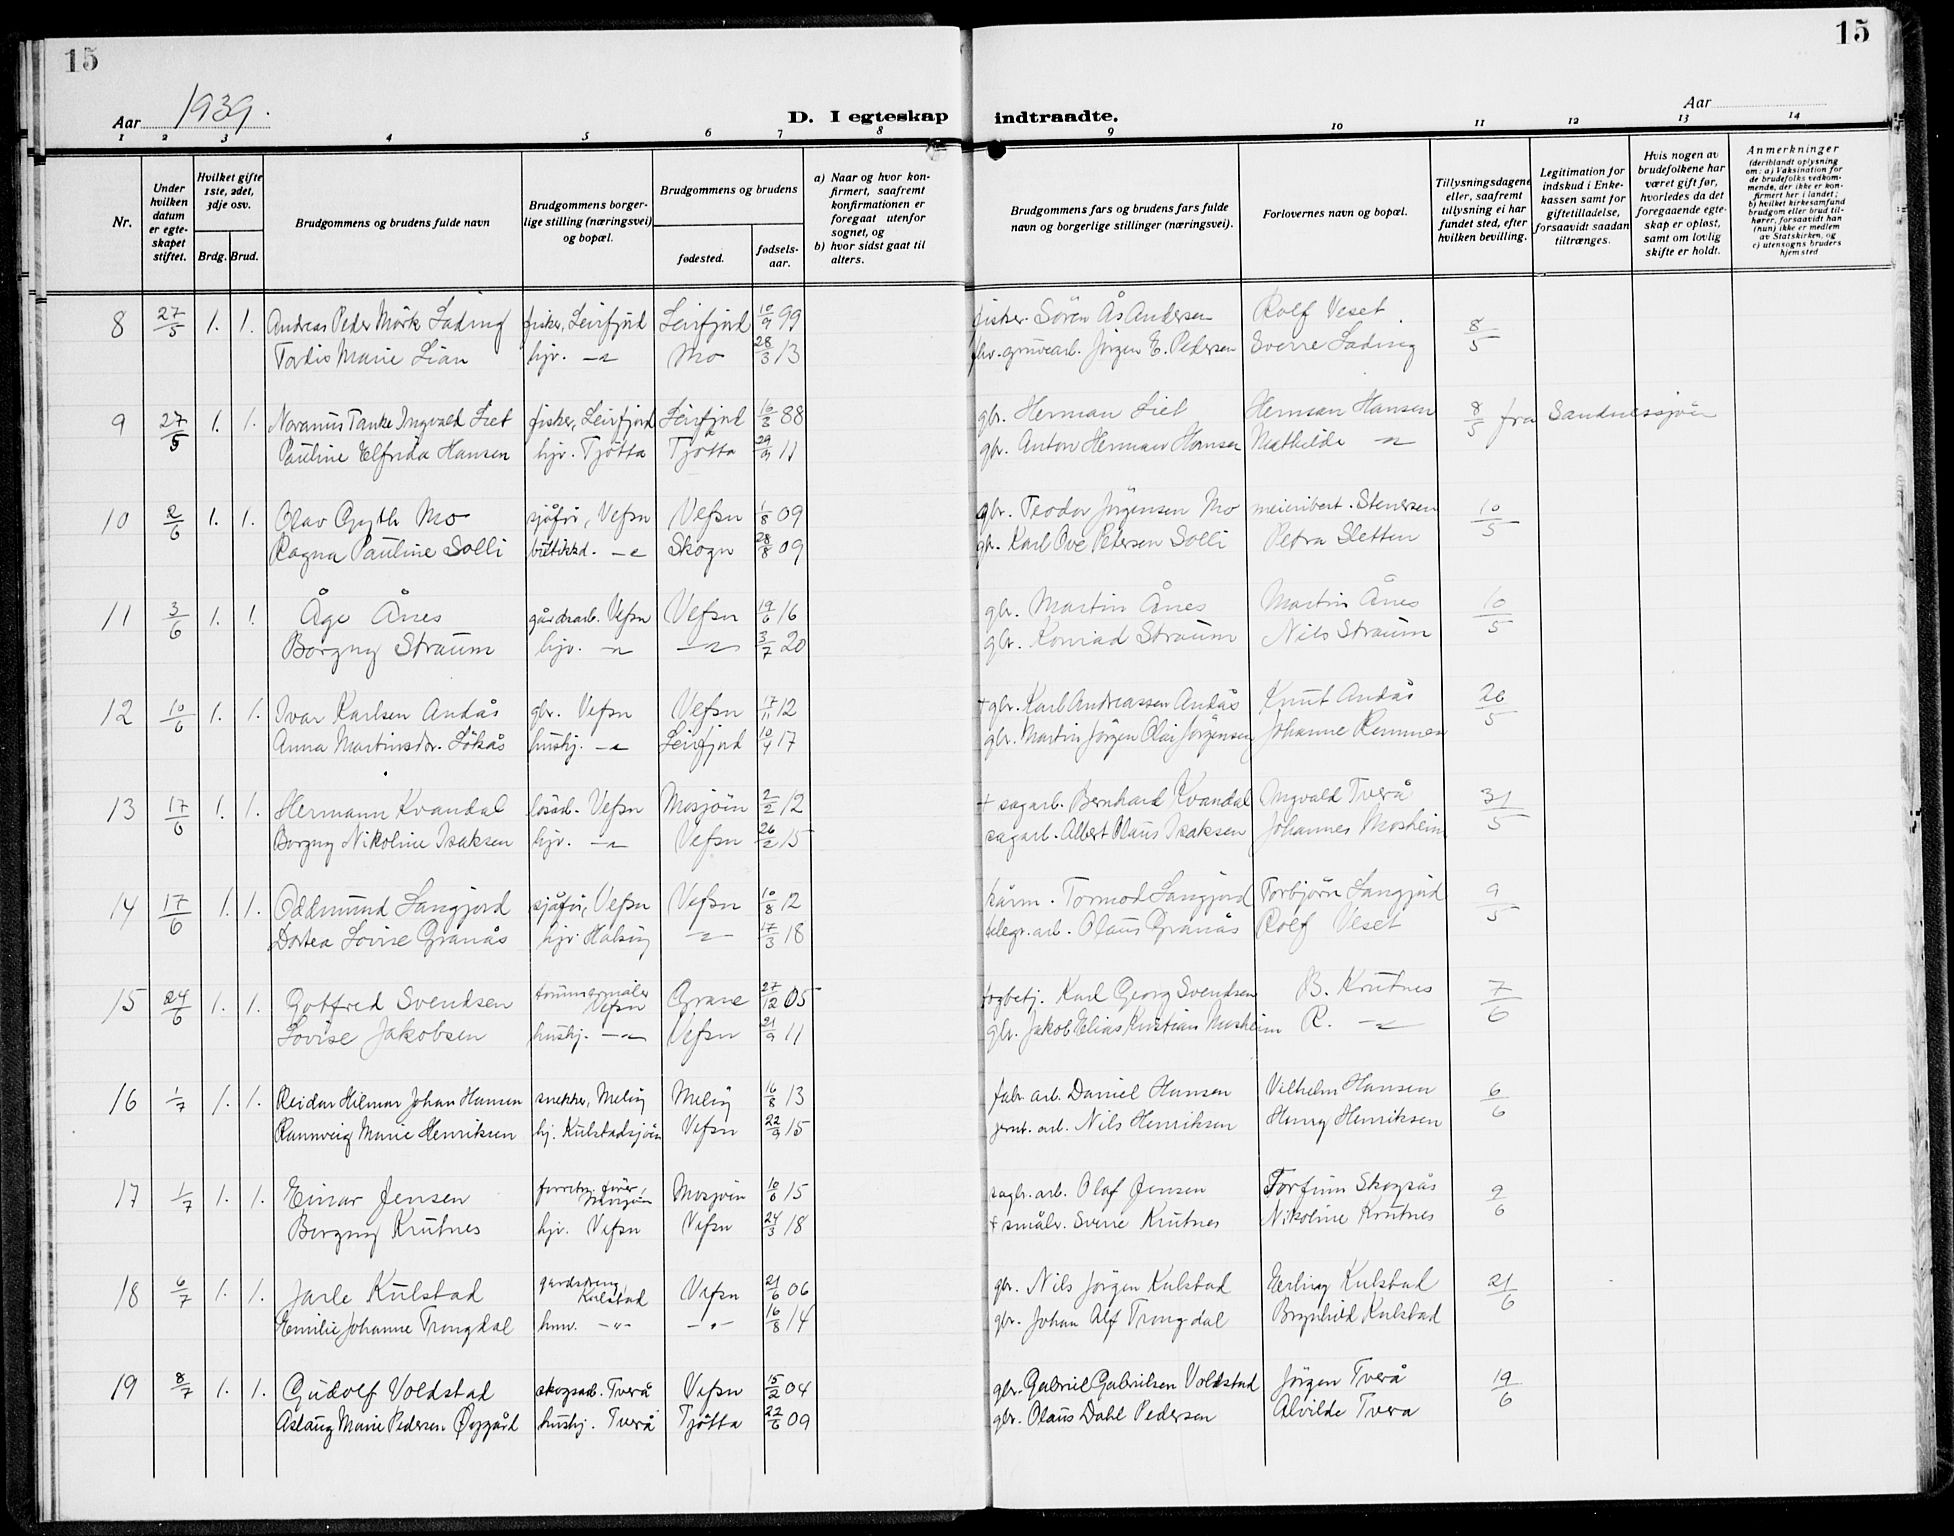 15
15
Aar 1939.
D. I egteskap indtraadte.
Aar
1 2 3 4 5 6 7 8 9 10 11 12 13 14
Nr.
Under hvilken datum er egteskapet stiftet.
Hvilket gifte 1ste, 2det, 3dje osv.
Brdg. Brud.
Brudgommens og brudens fulde navn
Brudgommens borgerlige stilling (næringsvei) og bopæl.
Brudgommens og brudens
fødested.
fødselsaar.
a) Naar og hvor konfirmert, saafremt konfirmationen er foregaat utenfor sognet, og
b) hvor sidst gaat til alters.
Brudgommens fars og brudens fars fulde navn og borgerlige stillinger (næringsvei).
Forlovernes navn og bopæl.
Tillysningsdagene eller, saafremt tillysning ei har fundet sted, efter hvilken bevilling.
Legitimation for indskud i Enkekassen samt for giftetilladelse, forsaavidt saadan tiltrænges.
Hvis nogen av brudefolkene har været gift før, hvorledes da det foregaaende egteskap er opløst, samt om lovlig skifte er holdt.
Anmerkninger
(deriblandt oplysning om: a) Vaksination for de brudefolks vedkommende, der ikke er konfirmert her i landet; b) hvilket kirkesamfund brudgom eller brud tilhører, forsaavidt han (hun) ikke er medlem av Statskirken, og c) utensogns bruders hjemsted
8 27/5 1. 1. Andreas Peder Mörk Lading fisker, Leirfjord Leirfjord 10/9 99 fisker. Sören Ås Andersen Rolf Veset 8/5
Tordis Marie Lian hjv. -"- Mo 28/3 13 fhv. gruvearb. Jörgen E. Pedersen Sverre Lading
9 27/5 1. 1. Novanius Tanke Ingvald Liet fisker, Leirfjord Leirfjord 16/3 88 gbr. Herman Liet Herman Hansen 8/5 fra Sandnessjøen
Pauline Elfrida Hansen hjv. Tjötta Tjötta 29/9 11 gbr. Anton Herman Hansen Mathilde -"-
10 2/6 1. 1. Olav Gryth Mo sjåför, Vefsn Vefsn 1/8 09 gbr. Teodor Jörgensen Mo meieribest. Stenersen 10/5
Ragna Pauline Solli -"- Skogn 28/8 09 gbr. Karl Ove Petersen Solli Petra Sletten
11 3/6 1. 1. Åge Ånes gårdsarb. Vefsn Vefsn 19/6 16 gbr. Martin Ånes Martin Ånes 10/5
Borgny Straum hjv. -"- -"- 3/7 20 gbr. Konrad Straum Nils Straum
12 10/6 1. 1. Ivar Karlsen Andås gbr. Vefsn Vefsn 17/11 12 + gbr. Karl Andreassen Andås Knut Andås 26/5
Anna Martinsdtr. Lökås hushj. -"- Leirfjord 10/4 17 gbr. Martin Jörgen Olai Jörgensen Johanne Remmen
13 17/6 1. 1. Hermann Kvandal Vefsn Mosjöen 2/2 12 + sagarb. Bernhard Kvandal Ingvald Tverå 31/5
Borgny Nikoline Isaksen hjv. -"- Vefsn 26/2 15 sagarb. Albert Olaus Isaksen Johannes Mosheim
14 17/6 1. 1. Oddmund Langjord sjåför, Vefsn Vefsn 10/8 12 Tormod Langjord Torbjörn Langjord 9/5
Dortea Lovise Granås hjv. Halsöy -"- 17/3 18 telegr. arb. Olaus Granås Rolf Veset
15 24/6 1. 1. Gotfred Svendsen tömmermåler Vefsn Grane 27/12 05 Karl Georg Svendsen B. Krutnes 7/6
Lovise Jakobsen hushj. -"- Vefsn 21/9 11 gbr. Jakob Elias Kristian Mosheim R. -"-
16 1/7 1. 1. Reidar Hilmar Johan Hansen snekker, Melöy Melöy 16/8 13 fabr. arb. Daniel Hansen Vilhelm Hansen 6/6
Rannveig Marie Henriksen hj. Kulstadsjöen Vefsn 22/9 15 jernb. arb. Nils Henriksen Henry Henriksen
17 1/7 1. 1. Einar Jensen forretn. förer, Mosjöen Mosjöen 10/6 15 sagbr. arb. Olaf Jensen Torfinn Skogsås 9/6
Borgny Krutnes hjv. Vefsn Vefsn 24/3 18 + småbr. Sverre Krutnes Nikoline Krutnes
18 6/7 1. 1. Jarle Kulstad gardsdreng Kulstad Vefsn 21/6 06 gbr. Nils Jörgen Kulstad Erling Kulstad 21/6
Emilie Johanne Trongdal -"- -"- 16/8 14 gbr. Johan Alf Trongdal Brynhild Kulstad
19 8/7 1. 1. Gudolf Voldstad skogsarb. Tverå Vefsn 15/2 04 gbr. Gabriel Gabrielsen Voldstad Jörgen Tverå 19/6
Aslaug Marie Pedersen Öygård hushj. Tverå Tjötta 22/6 09 gbr. Olaus Dahl Pedersen Alvilde Tverå